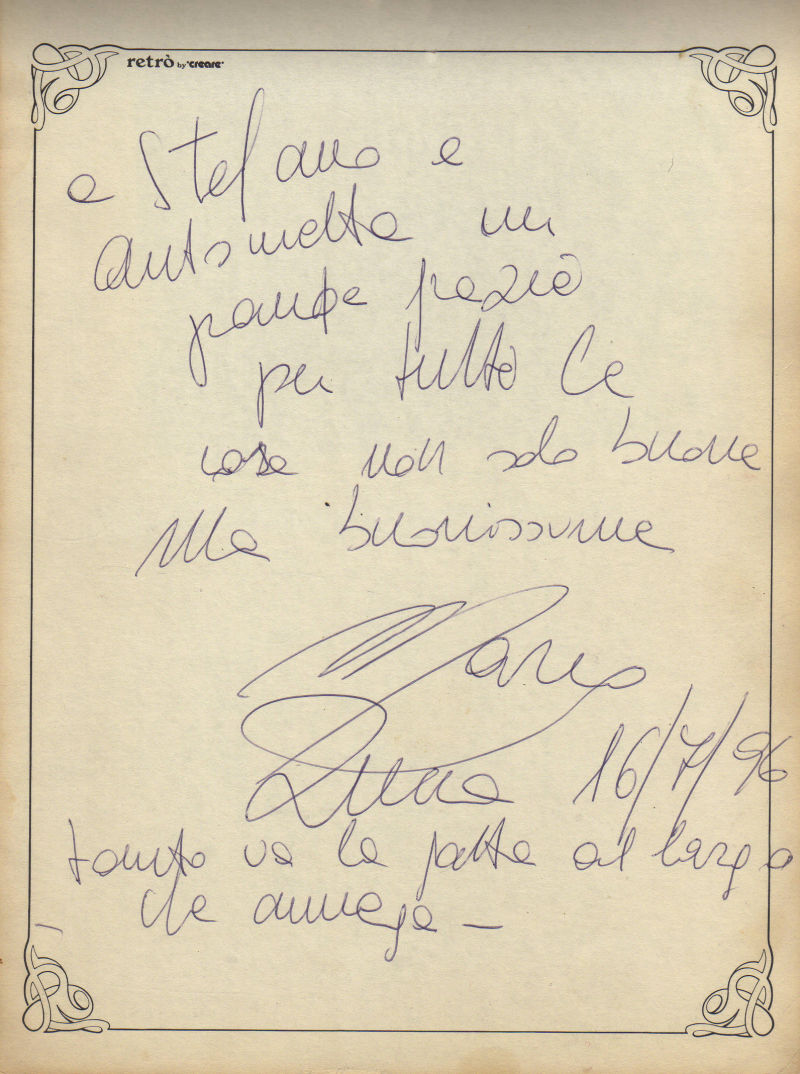 retrò by "creare"
a Stefano e
Antonietta un
grande grazie
per tutte le
cose non solo buone
ma buonissime
Marco
Luna 16/7/96
tanto va la gatta al largo
che annega –